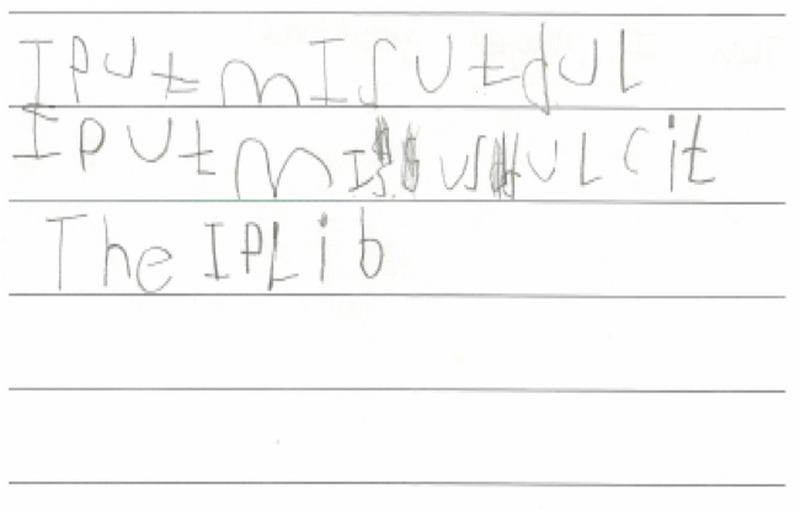 I PUt mISUtdUL
I PUt mIS USUL Cit
The IPLib